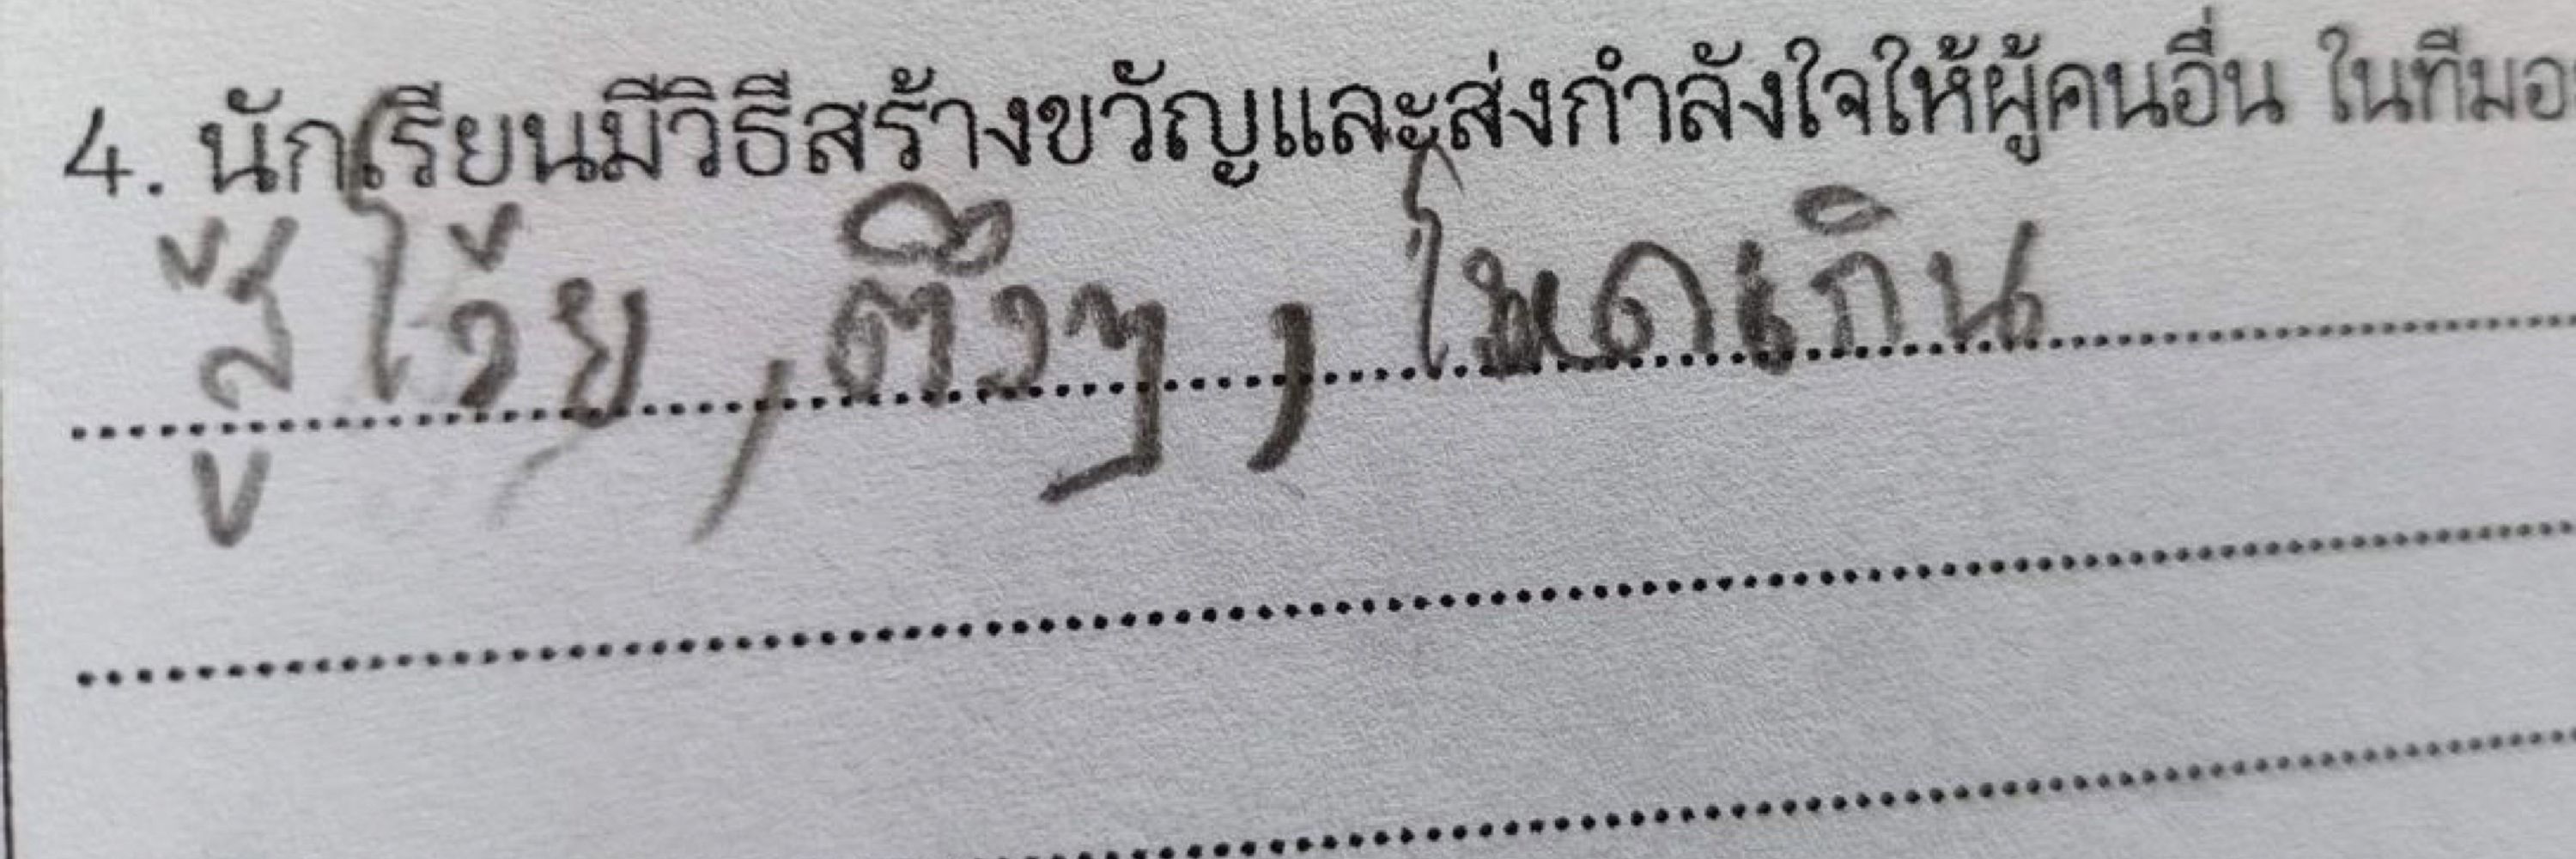 4. นักเรียนมีวิธีสร้างขวัญและส่งกำลังใจให้ผู้คนอื่น ในทีมอ
สู้โว้ย , ตึงๆ , โหดเกิน